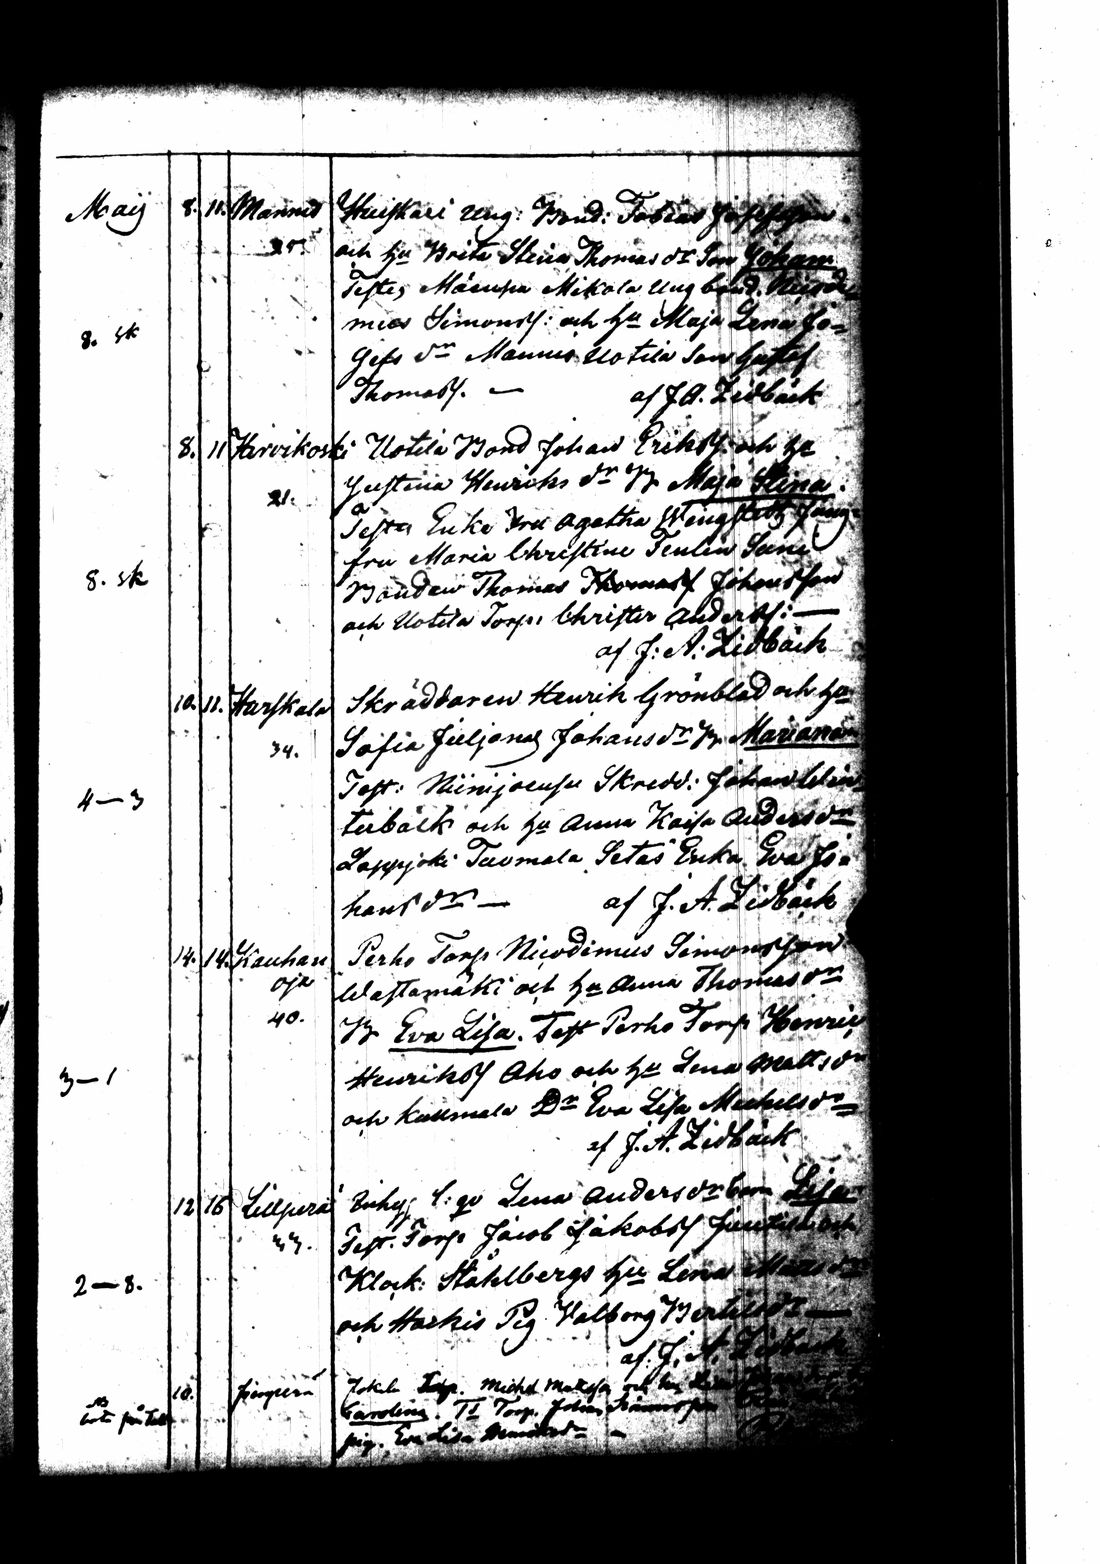 Maij 8. 11. Mannis Huskari Ung: Bond: Tobias Josefsson
25. och hu Brita Stina Thomas dr Son Johan
Testes Mäenpä Mikola Ung bond. Nicode-
8. sk mus Simonss: och hu Maja Lena Jo-
sefs dr Mannis Uotila Son Gustaf
Thomass. — af J. A. Zidbäck
8. 11 Hirvikoski Uotila Bond Johan Erikss: och hu
21. Justina Henriks dr B Maja Stina.
Testes Enke Fru Agatha Jung-
fru Maria Christine Sune
8. sk Bonden Thomas Johansson
och Uotila Torp: Christer Anderss: —
af J: A: Zidbäck
10. 11. Harskala Skräddaren Henrik Grönblad och hu
34. Sofia Juljana Johans dr B Mariana
Test: Niinijoensu Skredd: Johan Win-
4—3 terbäck och hu Anna Kaisa Anders dr
Lappjoki Tuomala Setas Enka Eva Jo-
hans dr — af J. A. Zidbäck
14. 14. Kauhan Perho Torp Nicodimus Simonsson
oja Wastamäki och hu Anna Thomas dr
40. B Eva Lisa. Test Perho Torp Henric
3—1 Henrikss Aho och hu Lena Matts dr
och Kallmala Dr Eva Lisa Michels dr
af J. A. Zidbäck
12 16 Lillperä Inhys l: qv Lena Anders dr barn Lisa
33. Test. Torp Jacob Jakobss Juutila och
2—8. Klock: Ståhlbergs hu Lena Matts dr
och Harkis Pig Valborg Bertils dr —
af J. A. Zidbäck
10. Jokela Torp. Michel och hu
Carolina Tt Torp.
pig. Eva Lisa —